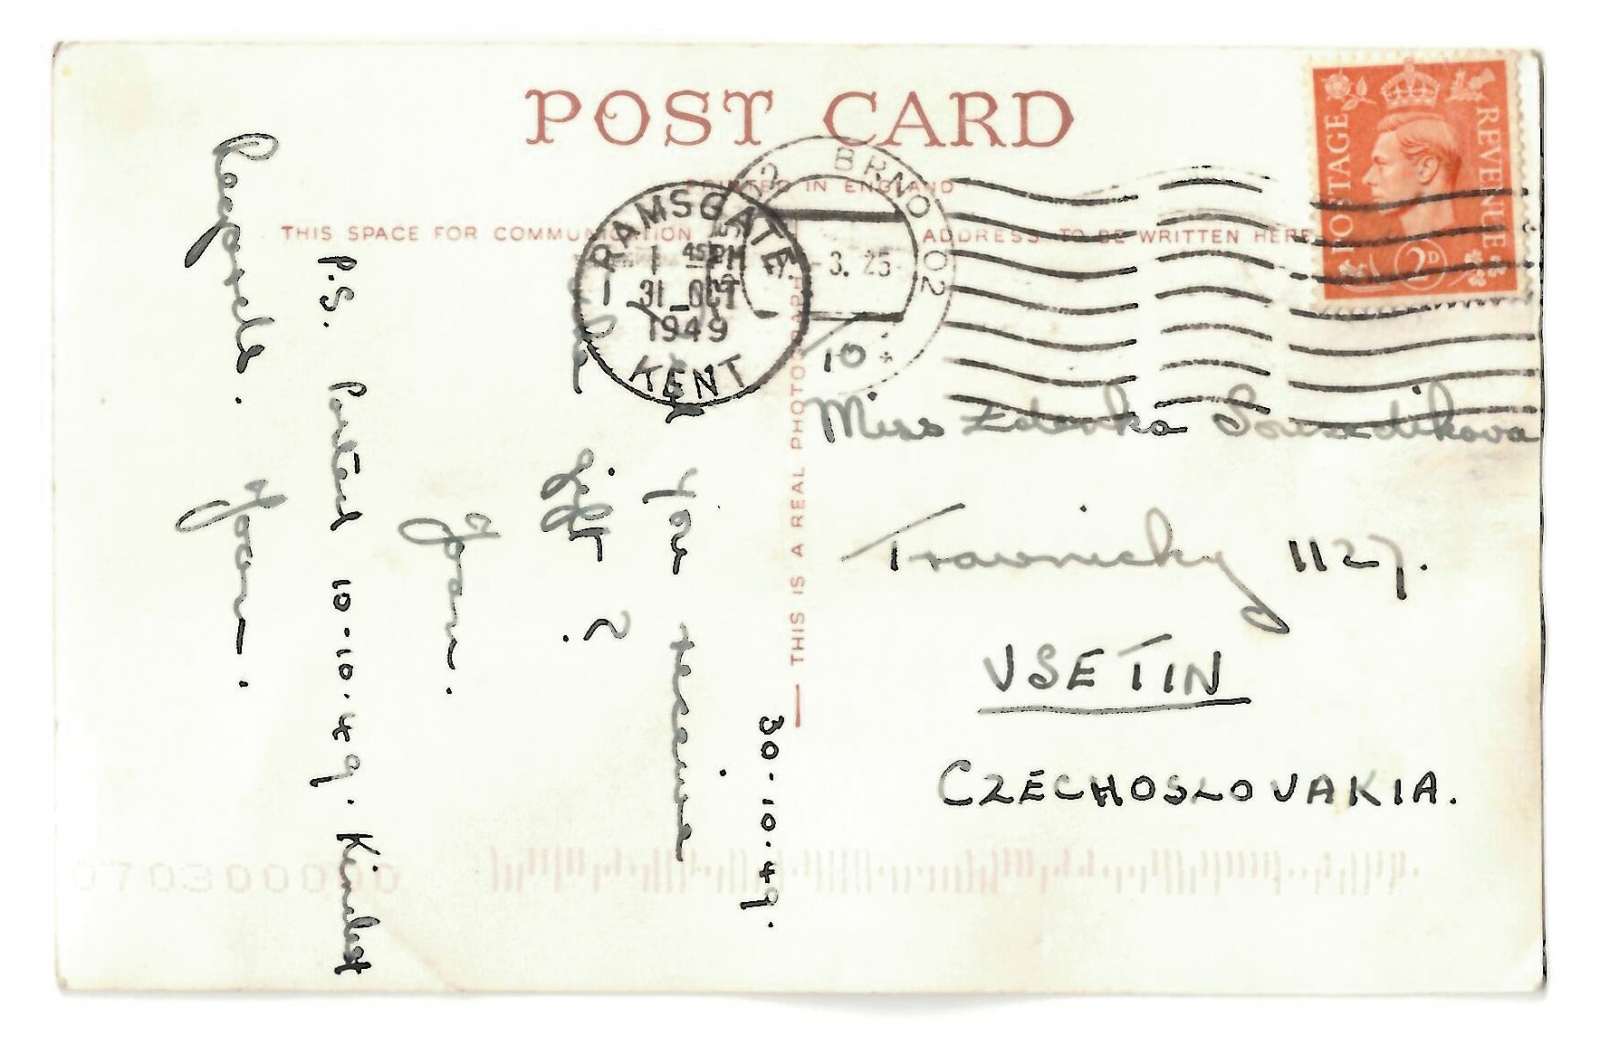 POST CARD
PRINTED IN ENGLAND
THIS SPACE FOR COMMUNICATION
ADDRESS TO BE WRITTEN HERE
THIS IS A REAL PHOTOGRAPH
POSTAGE REVENUE
2D
RAMSGATE
4 5 PM
31 OCT
1949
KENT
BRNO 02
3. 25
10
30-10-49.
Did you receive
Gift ?
Joan.
P.S. Posted 10-10-49. Kindest
Regards.
Joan.
Miss Zdenka Sousedikova
Travnicky 1127.
VSETIN
CZECHOSLOVAKIA.